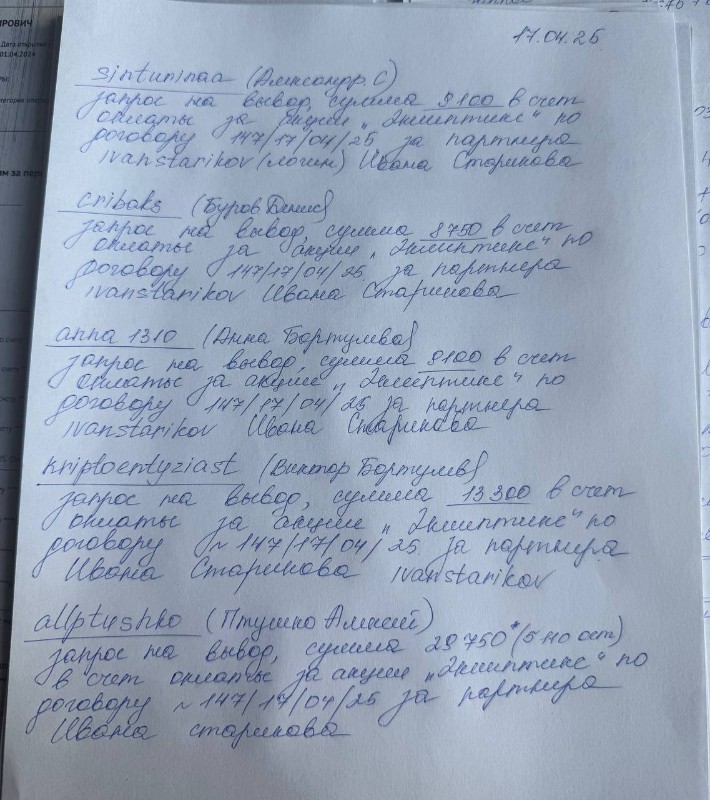 17.04.25
sintuninaa (Александр. С)
запрос на вывод, сумма 9100 в счет
оплаты за акции "Эклиптикс" по
договору 147/17/04/25 за партнера
ivanstarikov (логин) Ивана Старикова
cribaks (Буров Денис)
запрос на вывод, сумма 8750 в счет
оплаты за акции "Эклиптикс" по
договору 147/17/04/25 за партнера
ivanstarikov Ивана Старикова
anna1310 (Анна Бортулева)
запрос на вывод, сумма 9100 в счет
оплаты за акции "Эклиптикс" по
договору 147/17/04/25 за партнера
ivanstarikov Ивана Старикова
kriptoentyziast (Виктор Бортулев)
запрос на вывод, сумма 13300 в счет
оплаты за акции "Эклиптикс" по
договору ~ 147/17/04/25 за партнера
Ивана Старикова ivanstarikov
allptushko (Птушко Алексей)
запрос на вывод, сумма 29750* (5 но ост)
в счет оплаты за акции "Эклиптикс" по
договору ~ 147/17/04/25 за партнера
Ивана старикова
РОВИЧ
Дата открытия
01.04.2024